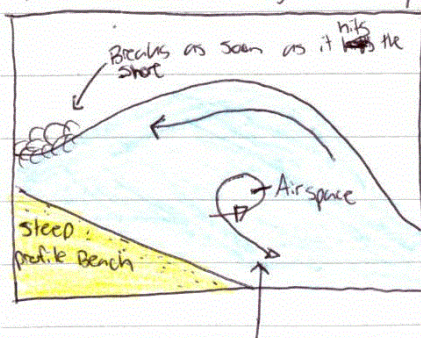 Breaks as soon as it hits the
shore
Airspace
Steep
profile Beach